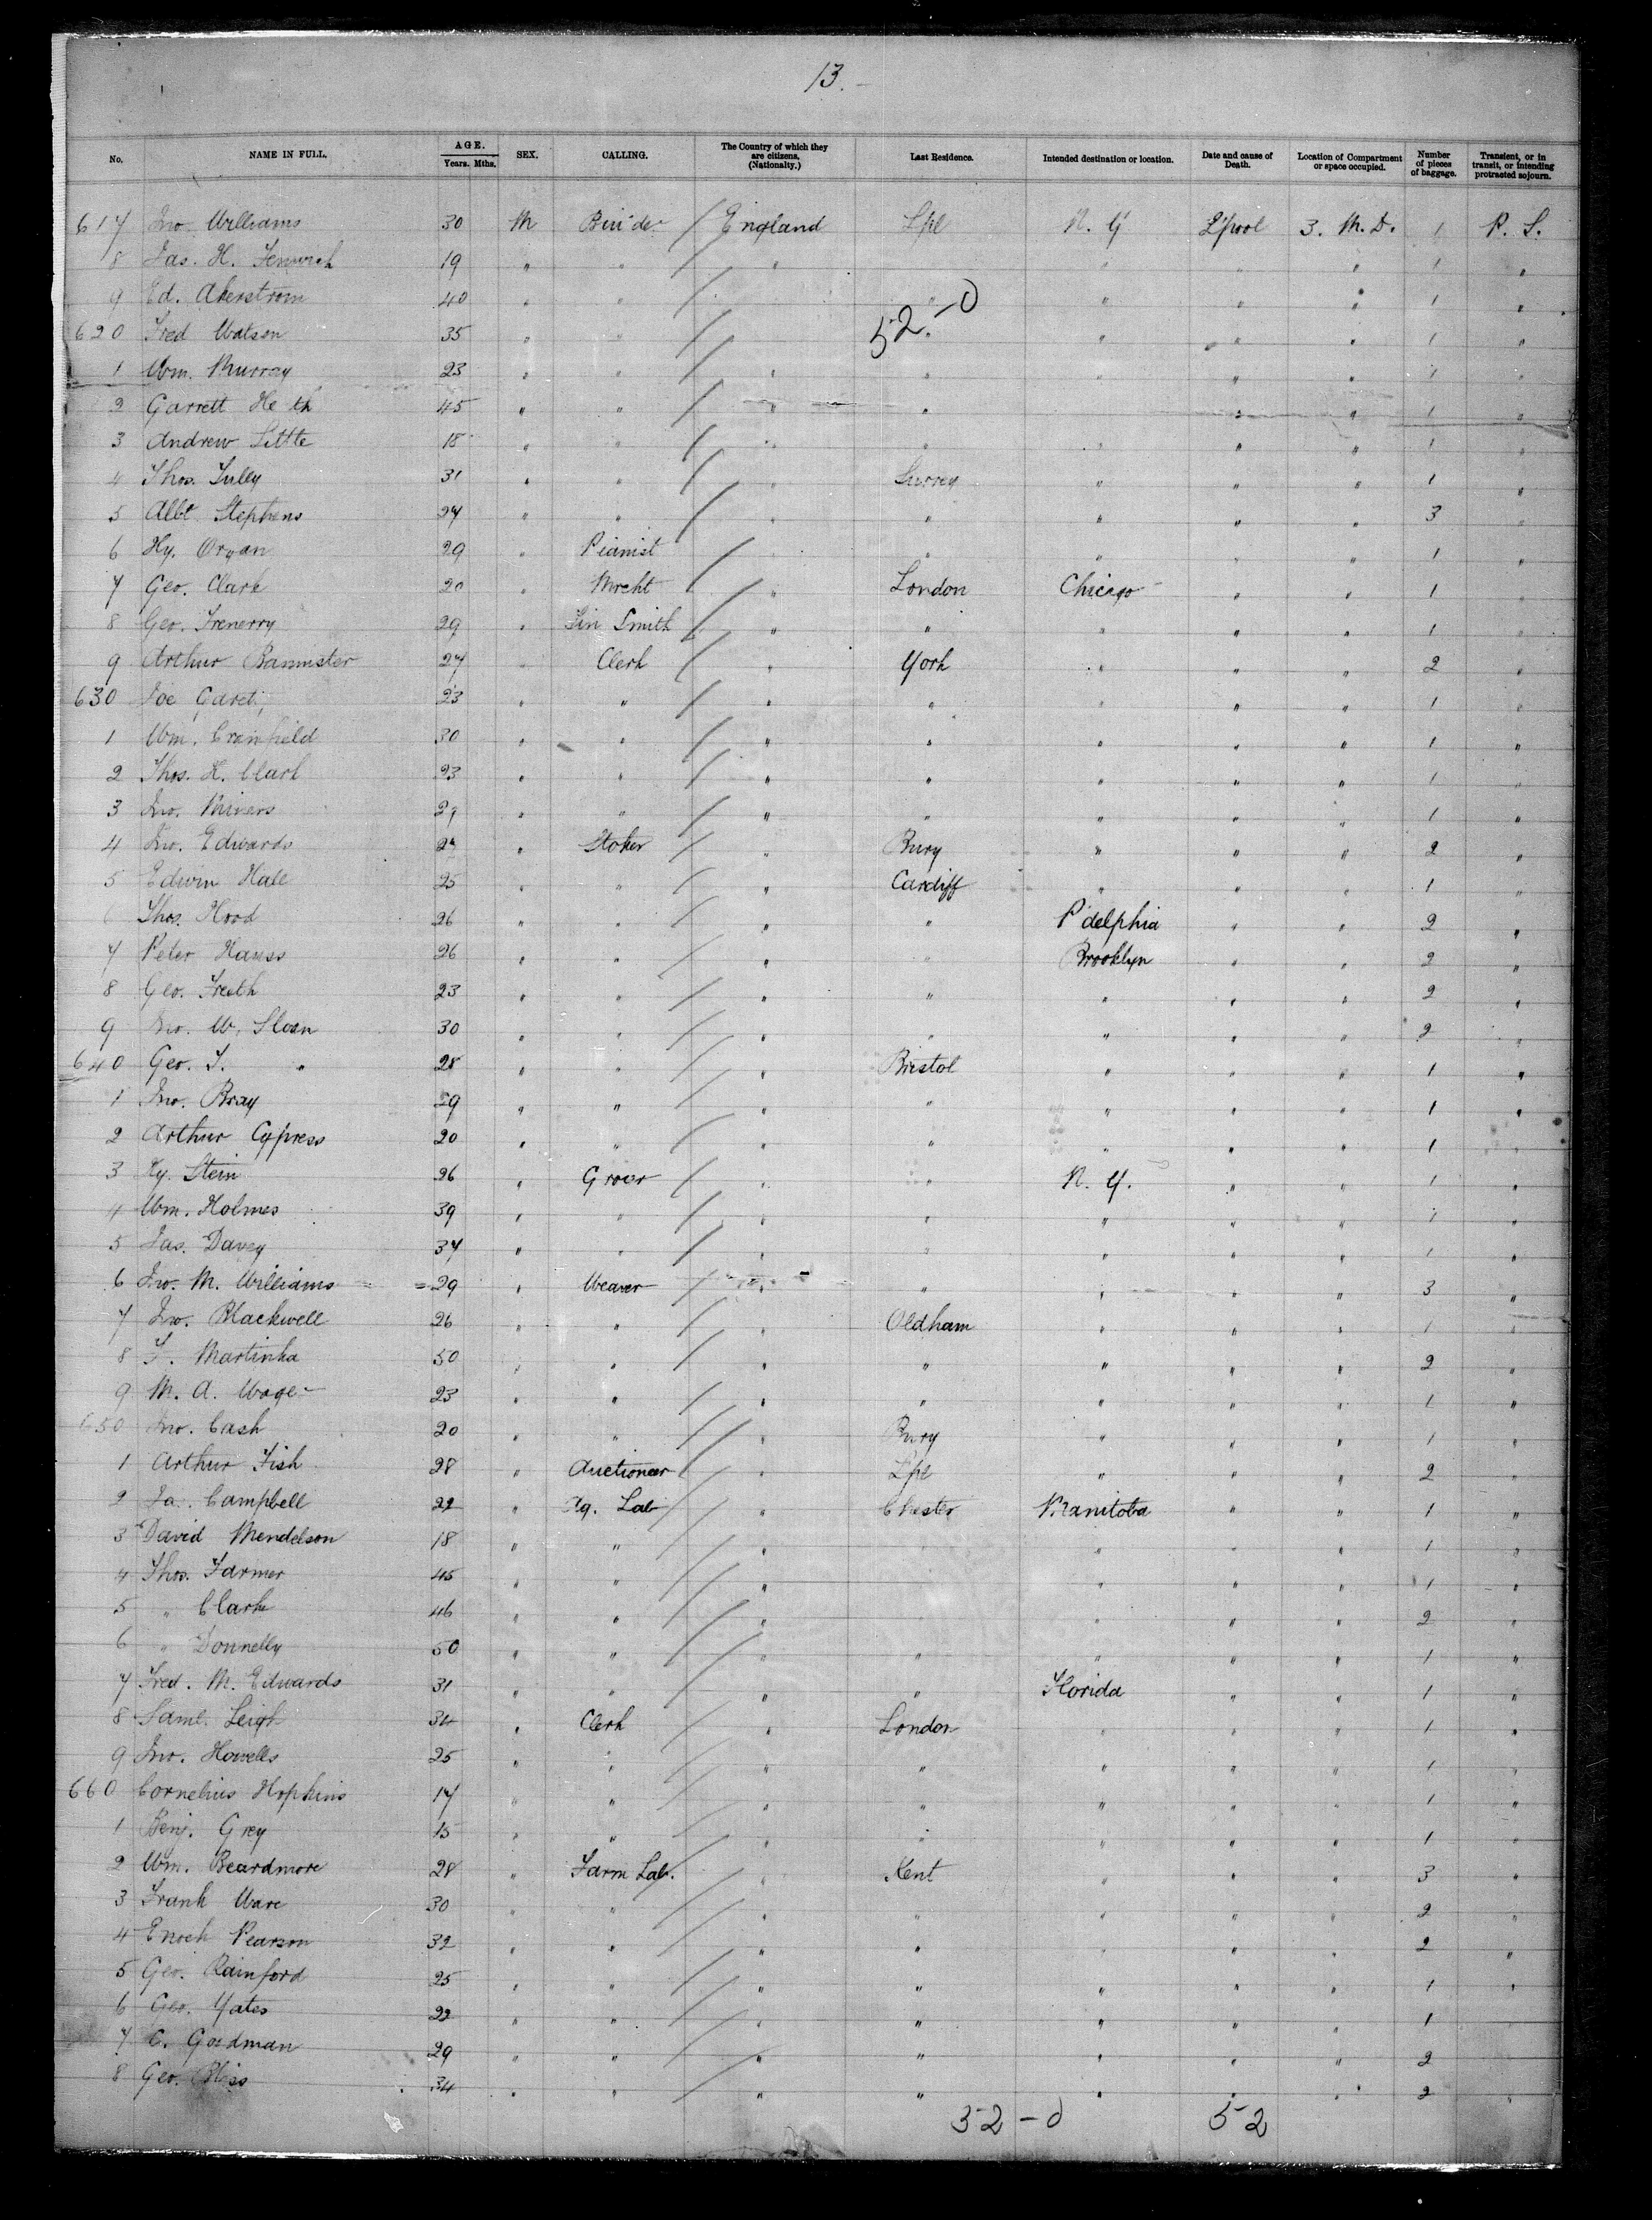 13.
No. NAME IN FULL. AGE. Years. Mths. SEX. CALLING. The Country of which they are citizens. (Nationalty.) Last Residence. Intended destination or location. Date and cause of Death. Location of Compartment or space occupied. Number of pieces of baggage. Transient, or in transit, or intending protracted sojourn.
617 Jno. Williams 30 M England Lpl N. Y L'pool 3. M. D. 1 P. S.
8 Jas. H. Fenwick 19 " " " " " " 1 "
9 Ed. Akerstrom 40 " " " " " " 1 "
52-0
620 Fred Watson 35 " " " " " " 1 "
1 Wm. Murray 23 " " " " " " " 1 "
2 Garrett 45 " " " " " " 1 "
3 Andrew Little 18 " " " " " " " 1 "
4 Thos. Tuley 31 " " " Surrey " " " 1 "
5 Albt. Stephens 27 " " " " " " " 3 "
6 Hy. Organ 29 " Pianist " " " " " 1 "
7 Geo. Clark 20 " Mrcht " London Chicago " " 1 "
8 Geo. Trenerry 29 " Tin Smith " " " " " 1 "
9 Arthur Bannister 27 " Clerk " York " " " 2 "
630 Joe 23 " " " " " " " 1 "
1 Wm. Cranfield 30 " " " " " " " 1 "
2 Thos. H. Clark 23 " " " " " " " 1 "
3 Jno. " " " " " " " 1 "
4 Jno. Edwards " Stoker " Bury " " " 2 "
5 Edwin Hale 25 " " " Cardiff " " " 1 "
6 Thos. Hood 26 " " " " P'delphia " " 2 "
7 Peter Hauss 26 " " " " Brooklyn " " 2 "
8 Geo. Freeth 23 " " " " " " " 2 "
9 Jno. W. Sloan 30 " " " " " " " 2 "
640 Geo. T. " 28 " " " Bristol " " " 1 "
1 Jno. Bray 29 " " " " " " " 1 "
2 Arthur Cypress 20 " " " " " " " 1 "
3 Hy. Stein 26 " Grocer " " N. Y. " " 1 "
4 Wm. Holmes 39 " " " " " " " 1 "
5 Jas. Davey 37 " " " " " " " 1 "
6 Jno. M. Williams 29 " Weaver " " " " " 3 "
7 Jno. Blackwell 26 " " " Oldham " " " 1 "
8 F. Martinka 50 " " " " " " " 2 "
9 M. A. 23 " " " " " " " 1 "
650 Jno. Cash 20 " " " Bury " " " 1 "
1 Arthur Fish 28 " Auctioneer " Lpl " " " 2 "
2 Ja. Campbell 22 " Ag. Lab " Chester Manitoba " " 1 "
3 David Mendelson 18 " " " " " " 1 "
4 Thos. Farmer 45 " " " " " " 1 "
5 " Clark 46 " " " " " " 2 "
6 " Donnelly 50 " " " " " " " 1 "
7 Fred. M. Edwards 31 " " " " Florida " " 1 "
8 Saml. Leigh 34 " Clerk " London " " " 1 "
9 Jno. Howells 25 " " " " " " " 1 "
660 Cornelius Hopkins 17 " " " " " " " 1 "
1 Benj. Grey 15 " " " " " " " 1 "
2 Wm. Beardmore 28 " Farm Lab. " Kent " " " 3 "
3 Frank Ware 30 " " " " " " " 2 "
4 Enoch Pearson 32 " " " " " " " 2 "
5 Geo. Rainford 25 " " " " " " " 1 "
6 Geo. Yates 22 " " " " " " " 1
7 C. Goodman 29 " " " " " " " 2
8 Geo. Bliss 34 " " " " " " " 2
52-0 52